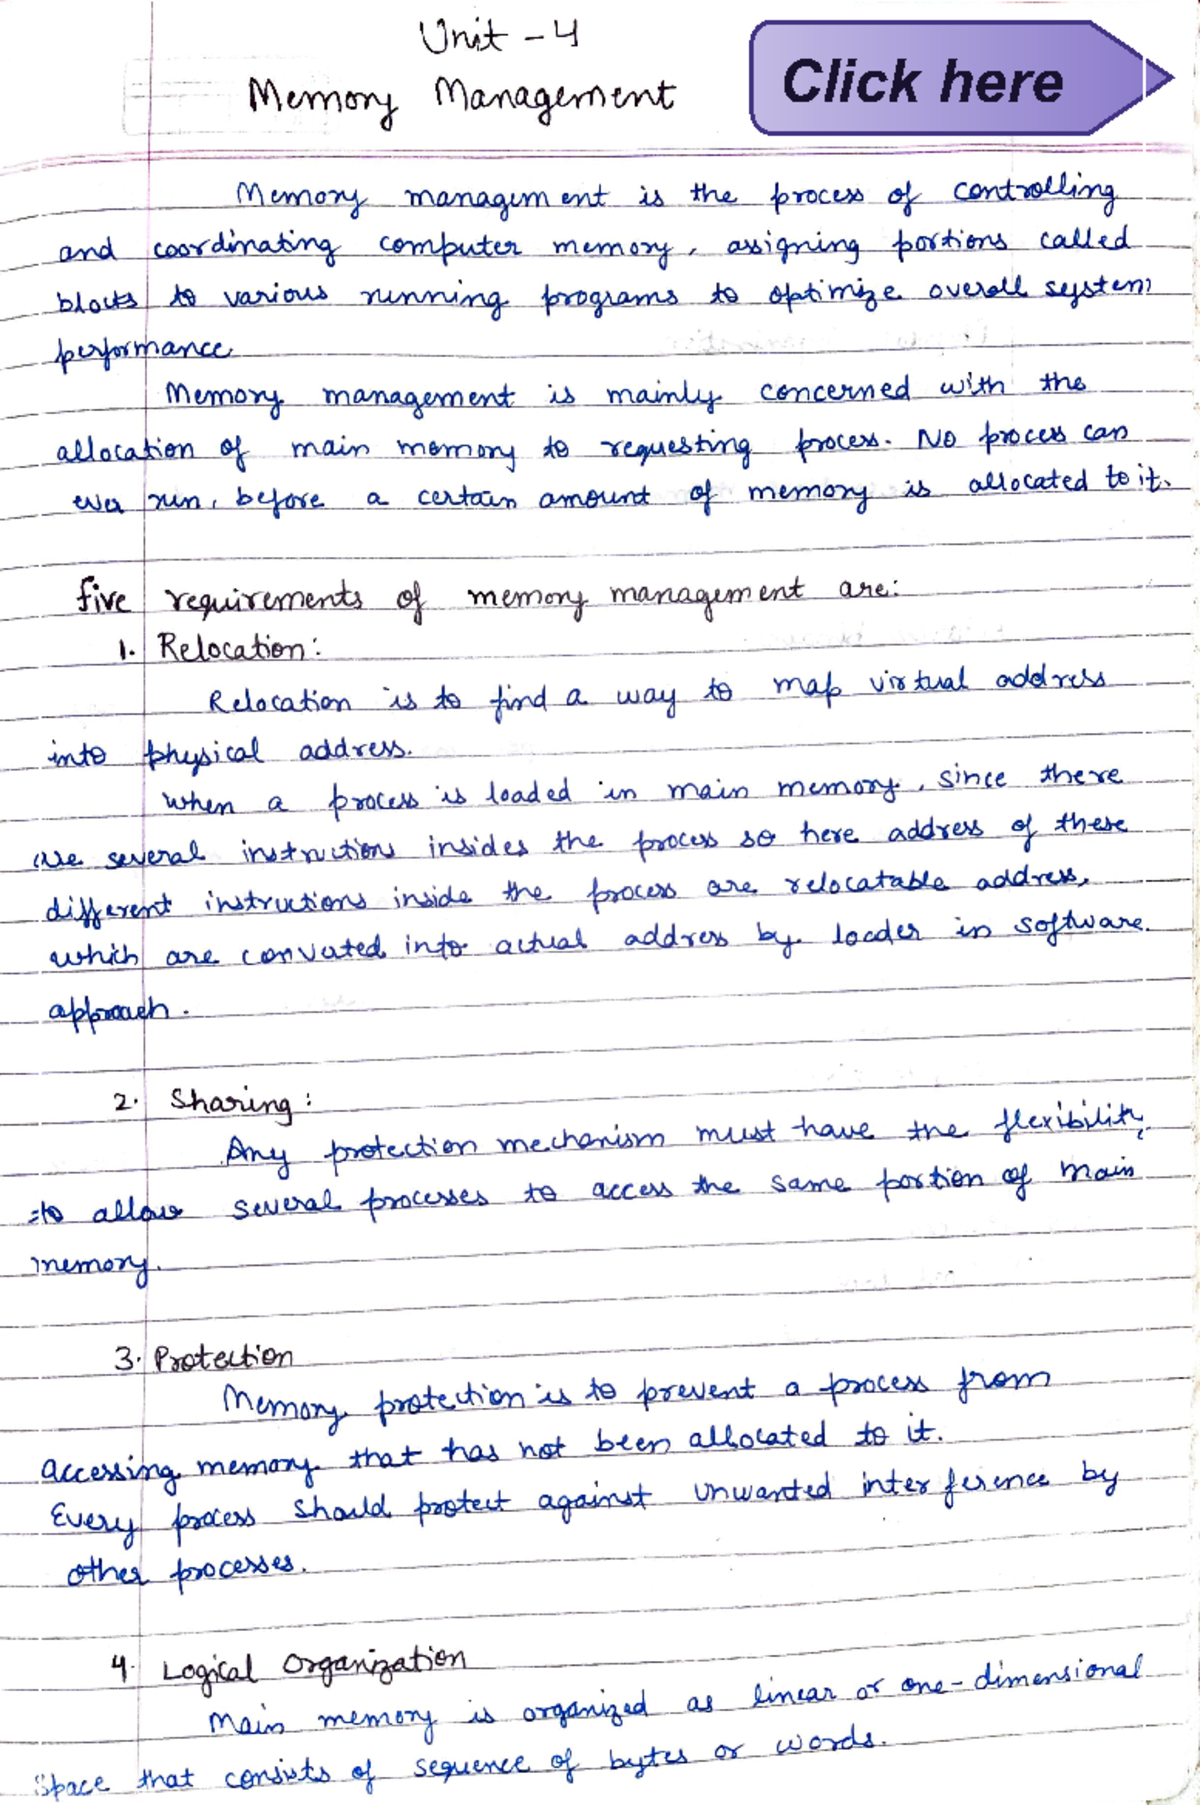 Unit - 4
Click here
Memory Management
Memory management is the process of controlling
and coordinating computer memory, assigning portions called
blocks to various running programs to optimize overall system
performance
Memory management is mainly concerned with the
allocation of main memory to requesting process. No process can
ever run, before a certain amount of memory is allocated to it.
five requirements of memory management are:
1. Relocation:
Relocation is to find a way to map virtual address
into physical address.
when a process is loaded in main memory, since there
are several instructions insides the process so here address of these
different instructions inside the process are relocatable address,
which are converted into actual address by loader in software.
approach.
2. Sharing:
Any protection mechanism must have the flexibility,
to allow several processes to access the same portion of main
memory.
3. Protection
Memory protection is to prevent a process from
accessing memory that has not been allocated to it.
Every process should protect against unwanted interference by
other processes.
4. Logical Organization
Main memory is organized as linear or one-dimensional
space that consists of sequence of bytes or words.